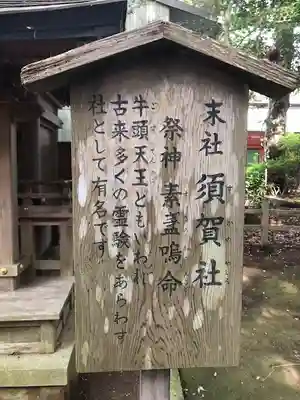 末社 須賀社
すかのやしろ
祭神 素盞嗚命
牛頭天王ともいわれ
古来多くの霊験をあらわす
社として有名です